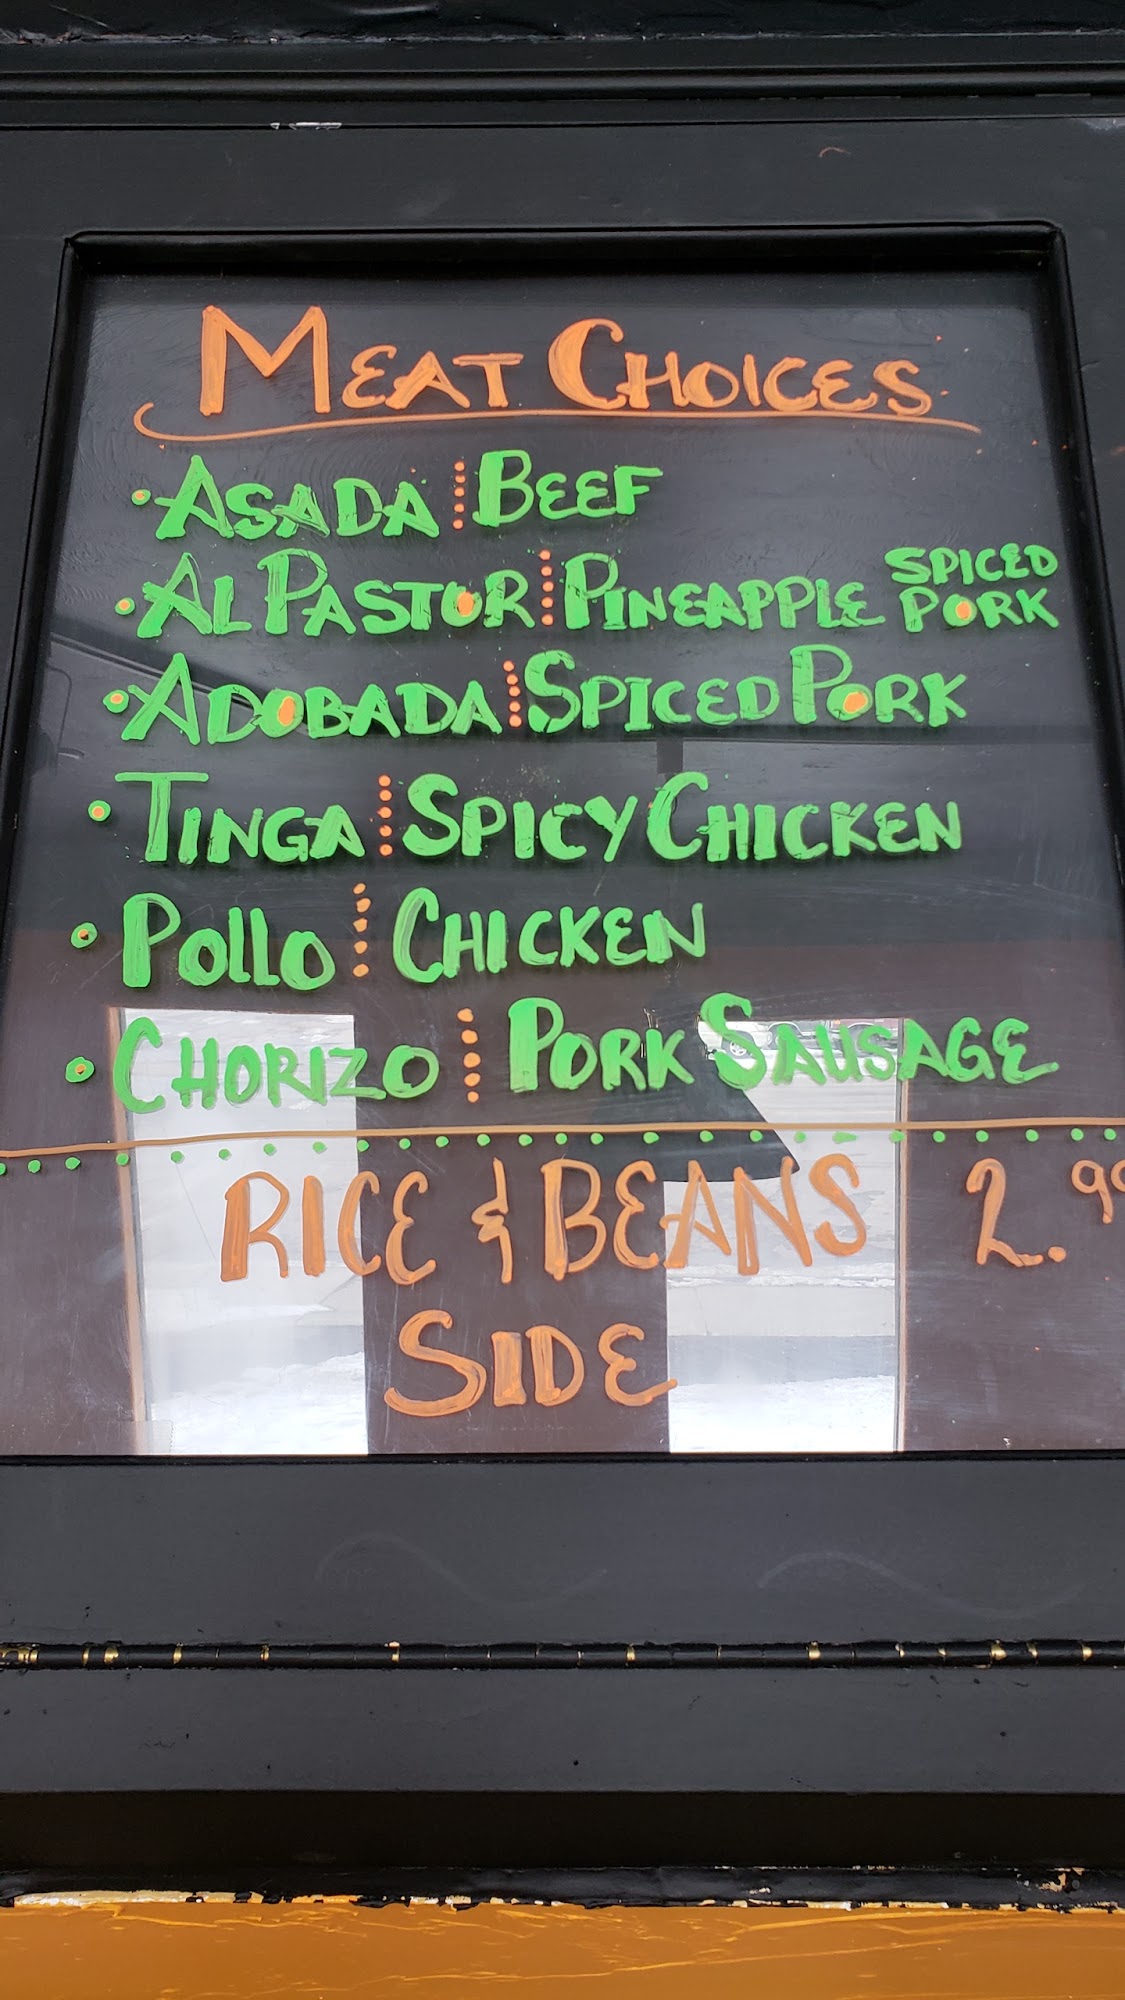 MEAT CHOICES
• ASADA ⁞ BEEF
• AL PASTOR ⁞ PINEAPPLE SPICED PORK
• ADOBADA ⁞ SPICED PORK
• TINGA ⁞ SPICY CHICKEN
• Pollo ⁞ CHICKEN
• CHORIZO ⁞ PORK SAUSAGE
RICE & BEANS 2.99
SIDE